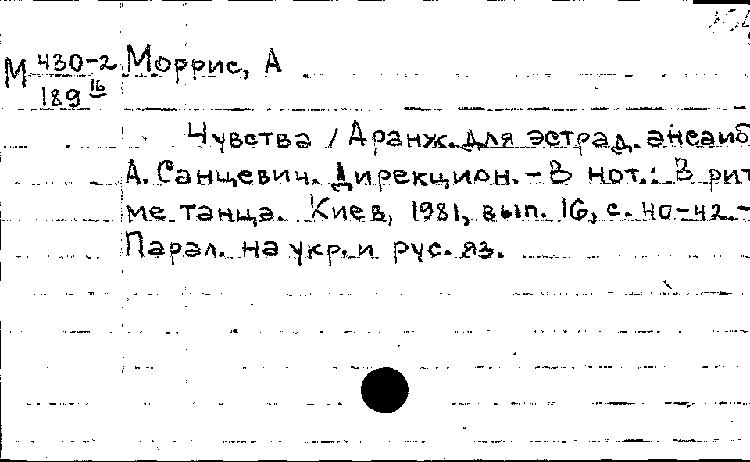 М 430-2 Моррис, А
189 16
Чувства / Аранж. для эстрад. ансамб
А. Санцевич. Дирекцион. – В нот.: В рит
ме танца. Киев, 1981, вып. 16, с. 40-42.–
Парал. на укр. и рус. яз.